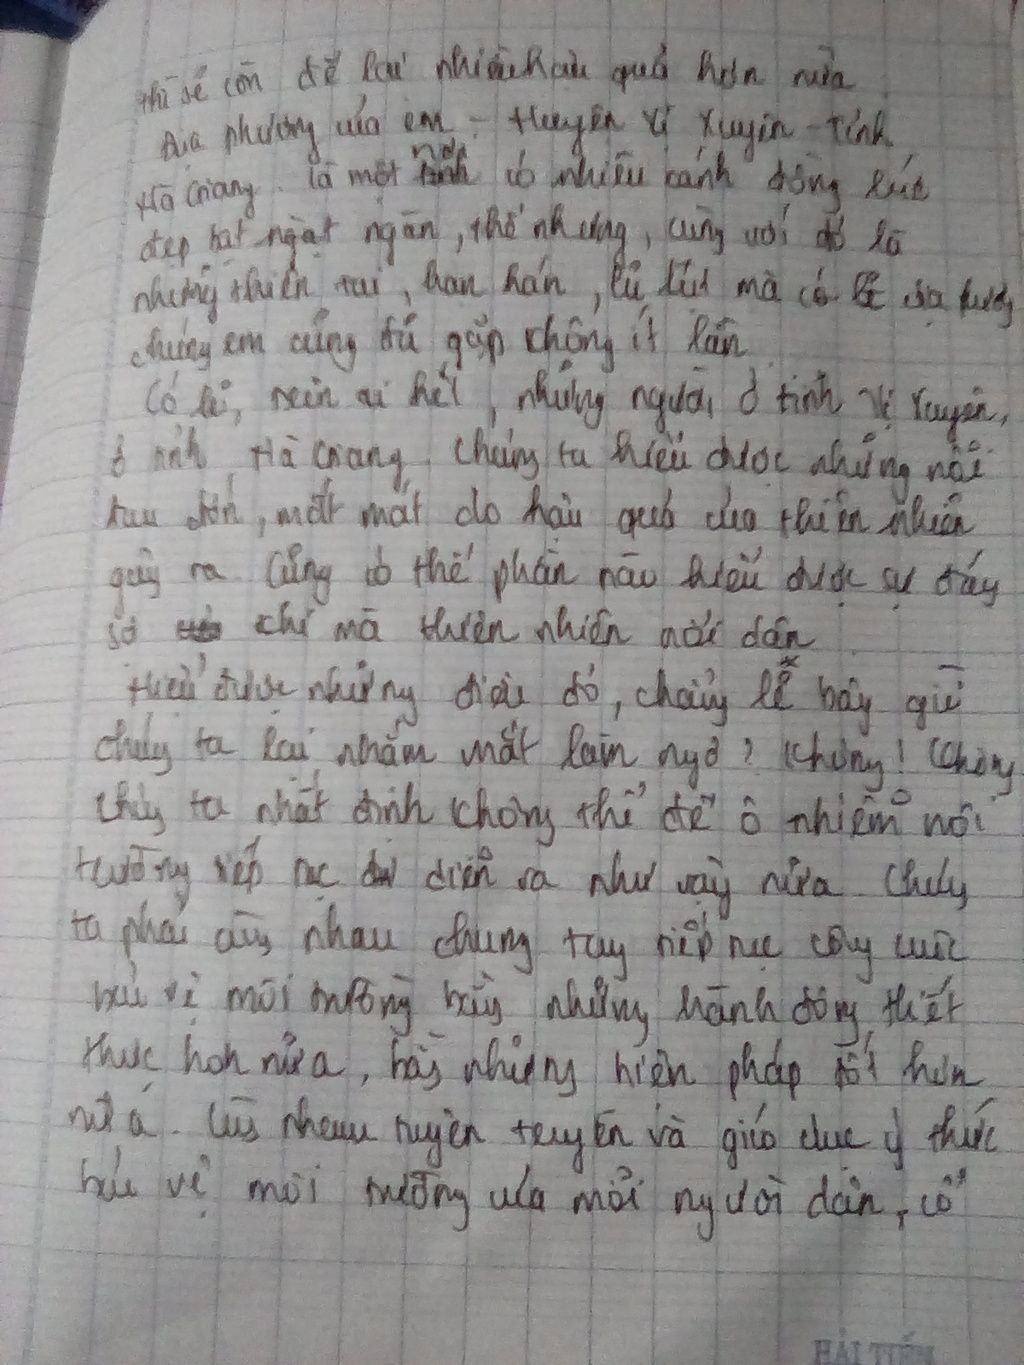 thì sẽ còn để lại nhiều hậu quả hơn nữa
Địa phương của em - Huyện Vị Xuyên - Tỉnh
Hà Giang. là một nơi có nhiều cánh đồng lúa
đẹp bát ngát ngàn, thế nhưng, cùng với đó là
những thiên tai, hạn hán, lũ lụt mà có lẽ địa phương
chúng em cũng đã gặp không ít lần
Có lẽ, hơn ai hết, những người ở tỉnh Vị Xuyên,
ở tỉnh Hà Giang, chúng ta hiểu được những nỗi
đau đớn, mất mát do hậu quả của thiên nhiên
gây ra. Cũng có thể phần nào hiểu được sự đáy
sợ chỉ mà thiên nhiên dần
Hiểu được những điều đó, chẳng lẽ bây giờ
chúng ta lại nhắm mắt làm ngơ? Không! Không
chúng ta nhất định không thể để ô nhiễm môi
trường tiếp tục diễn ra như vậy nữa. Chúng
ta phải cùng nhau chung tay tiếp tục công cuộc
bảo vệ môi trường bằng những hành động thiết
thực hơn nữa, bằng những biện pháp tốt hơn
nữa. Cùng nhau tuyên truyền và giáo dục ý thức
bảo vệ môi trường của mỗi người dân, cố
HẢI TIẾN